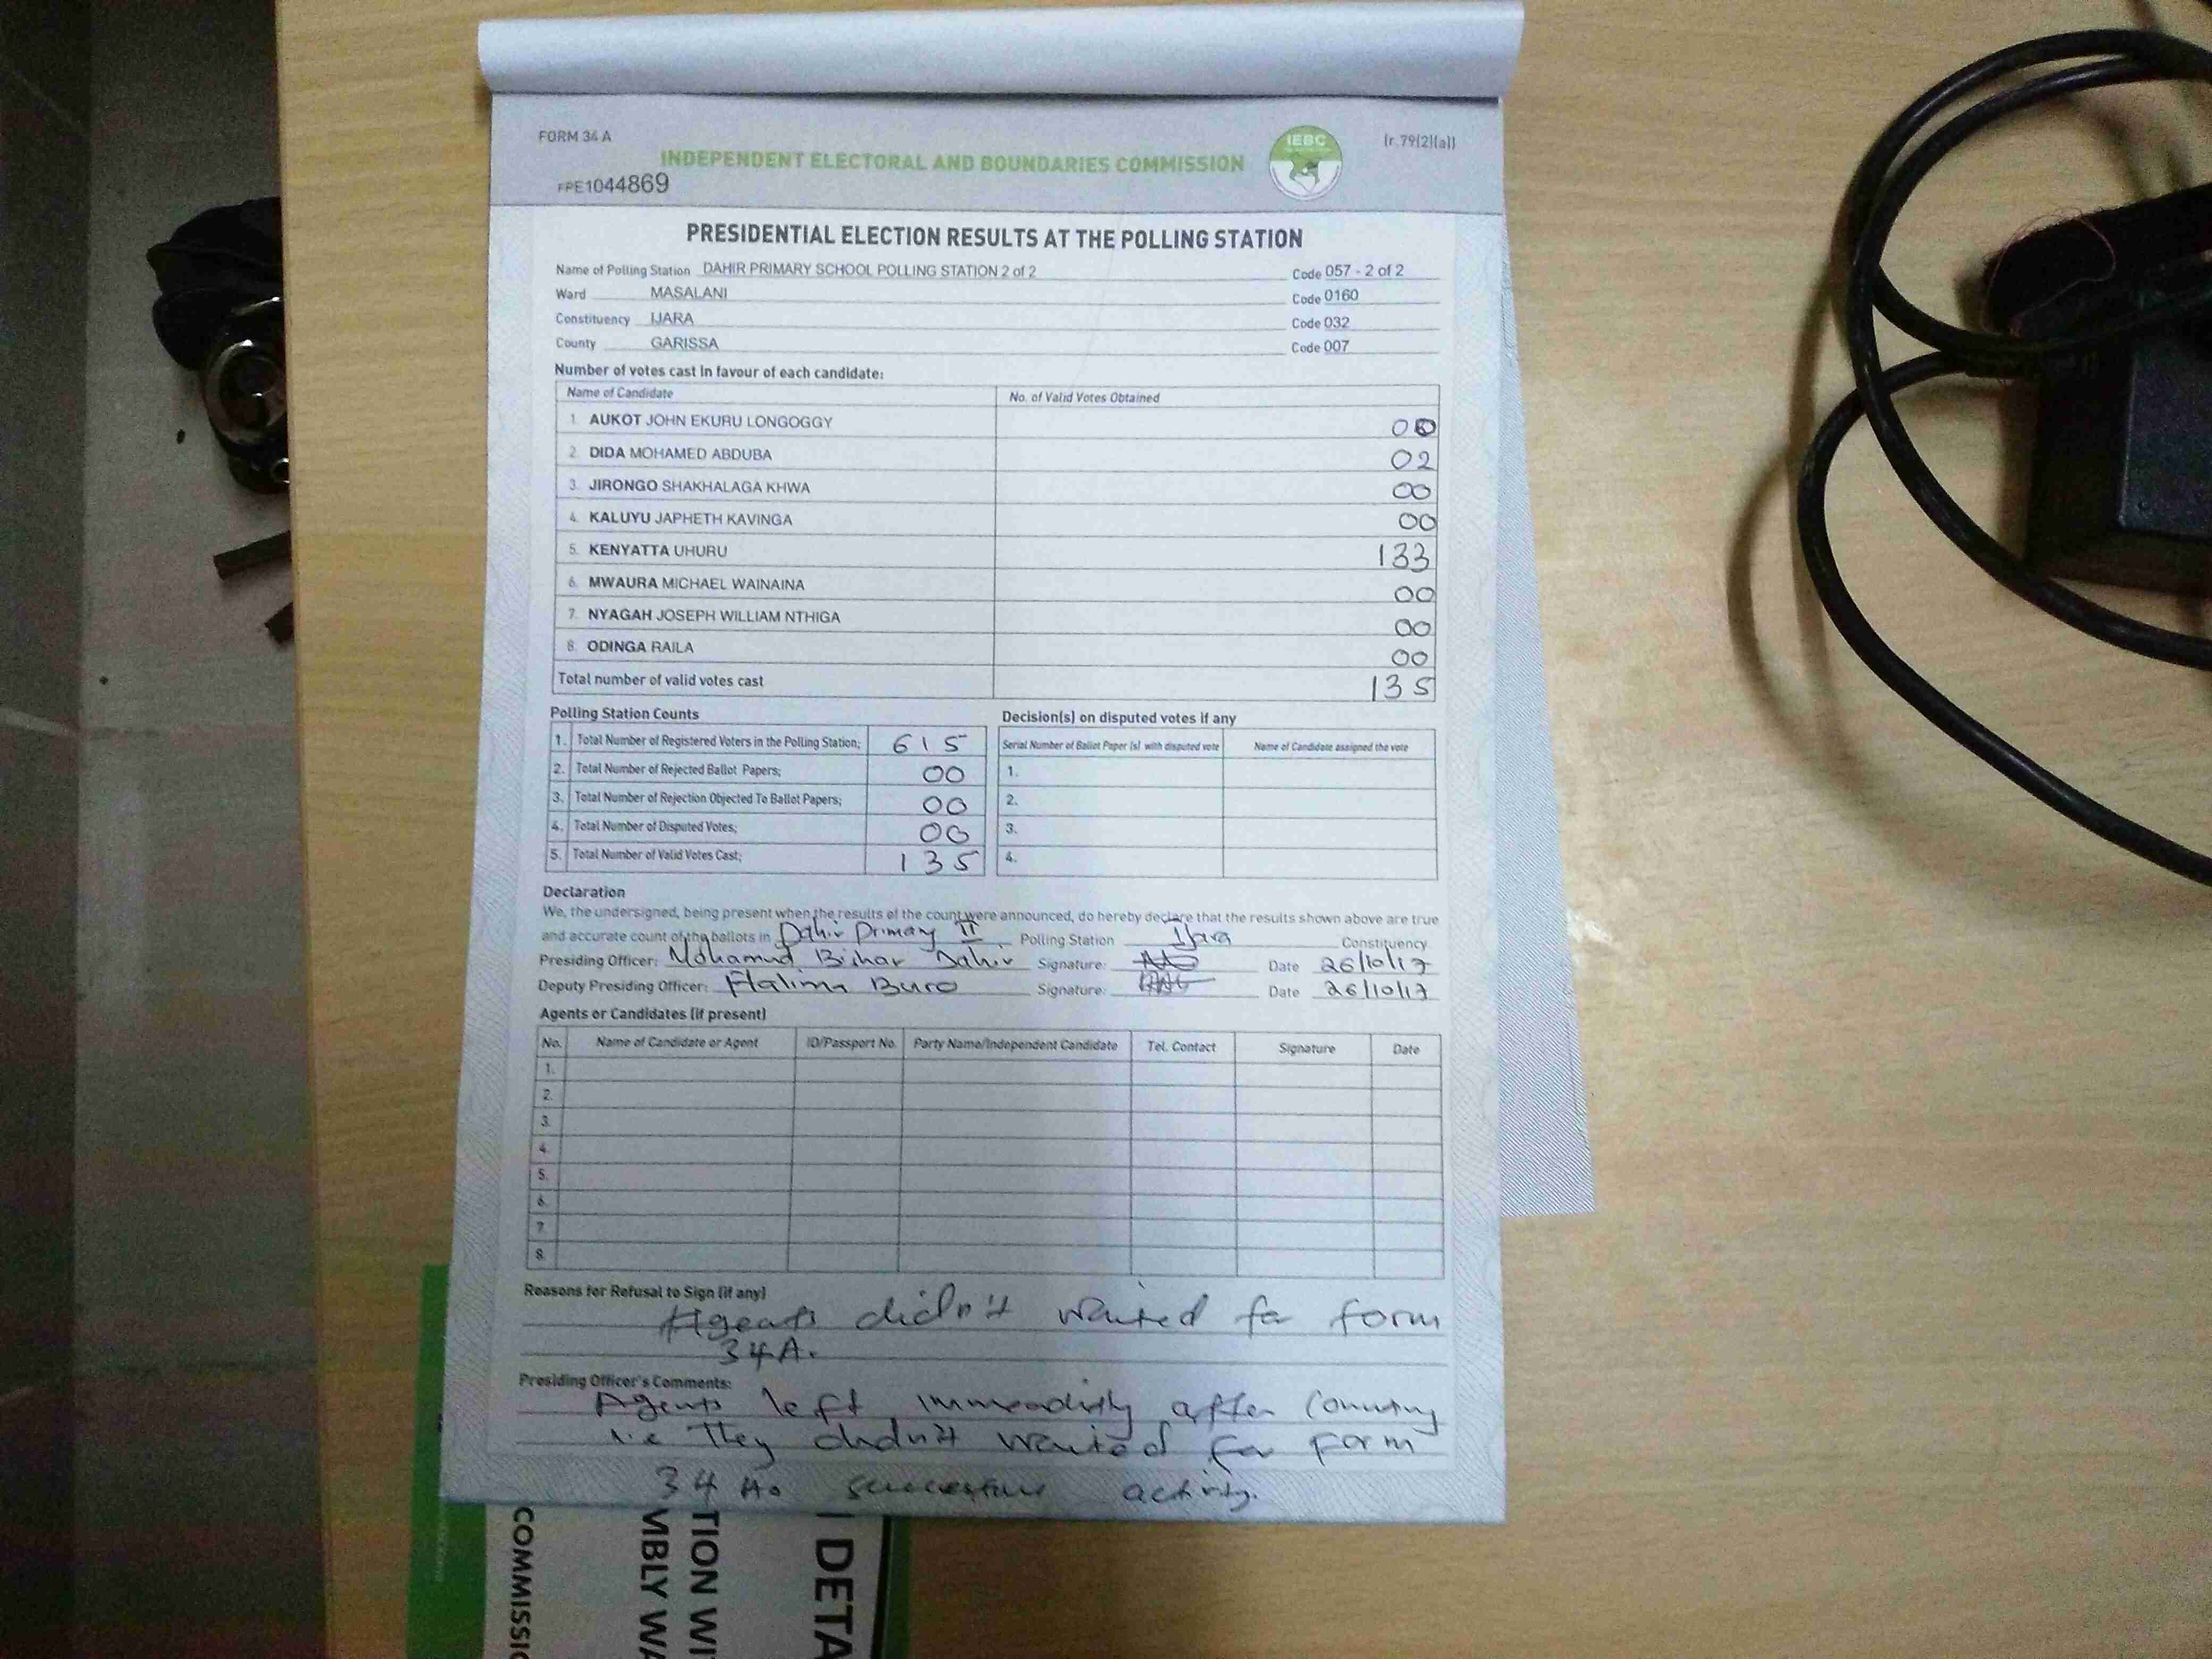 FORM 34 A
(r.79(2)(a))
INDEPENDENT ELECTORAL AND BOUNDARIES COMMISSION
IEBC
FPE1044869
PRESIDENTIAL ELECTION RESULTS AT THE POLLING STATION
Name of Polling Station DAHIR PRIMARY SCHOOL POLLING STATION 2 of 2 Code 057 - 2 of 2
Ward MASALANI Code 0160
Constituency IJARA Code 032
County GARISSA Code 007
Number of votes cast in favour of each candidate:
Name of Candidate No. of Valid Votes Obtained
1. AUKOT JOHN EKURU LONGOGGY 00
2. DIDA MOHAMED ABDUBA 02
3. JIRONGO SHAKHALAGA KHWA 00
4. KALUYU JAPHETH KAVINGA 00
5. KENYATTA UHURU 133
6. MWAURA MICHAEL WAINAINA 00
7. NYAGAH JOSEPH WILLIAM NTHIGA 00
8. ODINGA RAILA 00
Total number of valid votes cast 135
Polling Station Counts
1. Total Number of Registered Voters in the Polling Station; 615
2. Total Number of Rejected Ballot Papers; 00
3. Total Number of Rejection Objected To Ballot Papers; 00
4. Total Number of Disputed Votes; 00
5. Total Number of Valid Votes Cast; 135
Decision(s) on disputed votes if any
Serial Number of Ballot Paper (s) with disputed vote Name of Candidate assigned the vote
1.
2.
3.
4.
Declaration
We, the undersigned, being present when the results of the count were announced, do hereby declare that the results shown above are true
and accurate count of the ballots in Dahir Primary II Polling Station Ijara Constituency.
Presiding Officer: Mohamud Bishar Dahir Signature: Date 26/10/17
Deputy Presiding Officer: Halima Buro Signature: Date 26/10/17
Agents or Candidates (if present)
No. Name of Candidate or Agent ID/Passport No. Party Name/Independent Candidate Tel. Contact Signature Date
1.
2.
3.
4.
5.
6.
7.
8.
Reasons for Refusal to Sign (if any)
Agents didn't waited for form
34A.
Presiding Officer's Comments:
Agents left immeadiatly after Counting
i.e They didn't waited for form
34 A. successful activity.
COMMISSIO
MBLY WA
TION WI
DETA